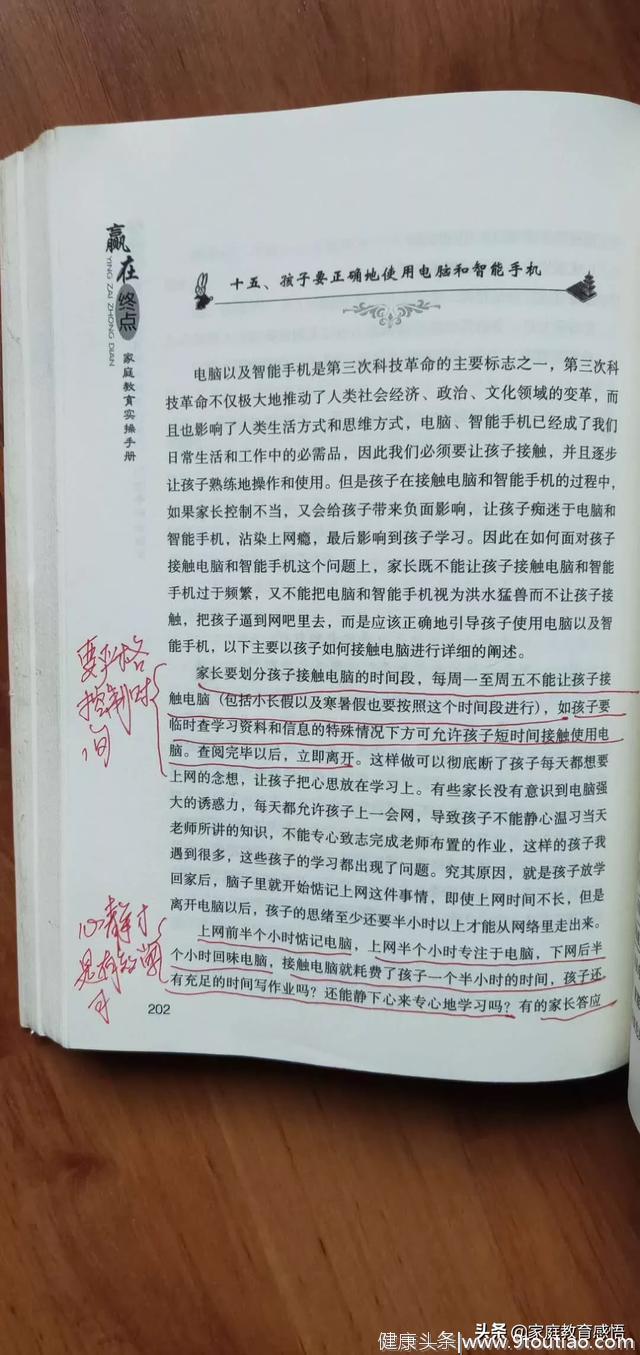 赢在终点
YING ZAI ZHONG DIAN
家庭教育实操手册
十五、孩子要正确地使用电脑和智能手机
电脑以及智能手机是第三次科技革命的主要标志之一，第三次科
技革命不仅极大地推动了人类社会经济、政治、文化领域的变革，而
且也影响了人类生活方式和思维方式，电脑、智能手机已经成了我们
日常生活和工作中的必需品，因此我们必须要让孩子接触，并且逐步
让孩子熟练地操作和使用。但是孩子在接触电脑和智能手机的过程中，
如果家长控制不当，又会给孩子带来负面影响，让孩子痴迷于电脑和
智能手机，沾染上网瘾，最后影响到孩子学习。因此在如何面对孩子
接触电脑和智能手机这个问题上，家长既不能让孩子接触电脑和智能
手机过于频繁，又不能把电脑和智能手机视为洪水猛兽而不让孩子接
触，把孩子逼到网吧里去，而是应该正确地引导孩子使用电脑以及智
能手机，以下主要以孩子如何接触电脑进行详细的阐述。
家长要划分孩子接触电脑的时间段，每周一至周五不能让孩子接
触电脑（包括小长假以及寒暑假也要按照这个时间段进行），如孩子要
临时查学习资料和信息的特殊情况下方可允许孩子短时间接触使用电
脑。查阅完毕以后，立即离开。这样做可以彻底断了孩子每天都想要
上网的念想，让孩子把心思放在学习上。有些家长没有意识到电脑强
大的诱惑力，每天都允许孩子上一会网，导致孩子不能静心温习当天
老师所讲的知识，不能专心致志完成老师布置的作业，这样的孩子我
遇到很多，这些孩子的学习都出现了问题。究其原因，就是孩子放学
回家后，脑子里就开始惦记上网这件事情，即使上网时间不长，但是
离开电脑以后，孩子的思绪至少还要半小时以上才能从网络里走出来。
上网前半个小时惦记电脑，上网半个小时专注于电脑，下网后半
个小时回味电脑，接触电脑就耗费了孩子一个半小时的时间，孩子还
有充足的时间写作业吗？还能静下心来专心地学习吗？有的家长答应
要严格
控制时
间
心静才
202
头条 @家庭教育感悟
健康头条|www.9toutiao.com